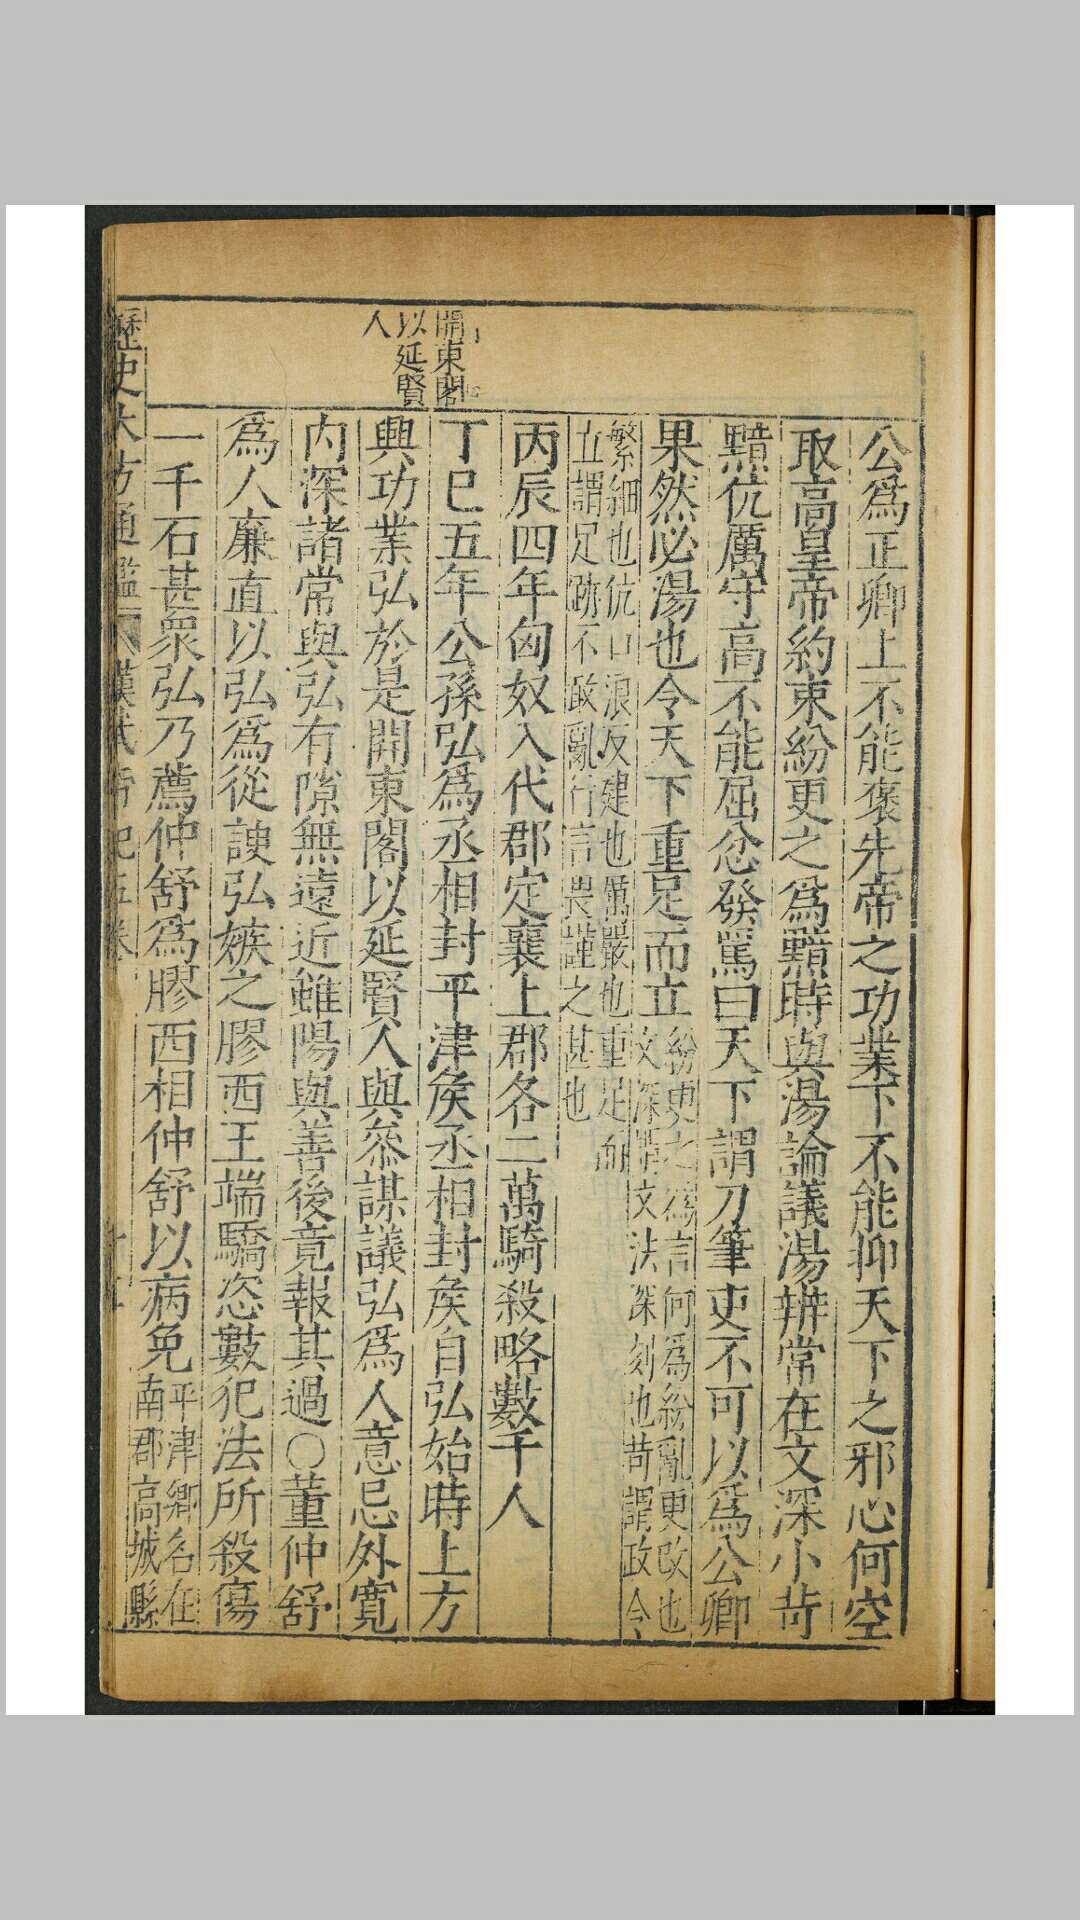 開東閣
以延賢
人
公爲正卿上不能褒先帝之功業下不能抑天下之邪心何空
取高皇帝約束紛更之爲黯時與湯論議湯辨常在文深小苛
黯伉厲守高不能屈忿發罵曰天下謂刀筆吏不可以爲公卿
果然必湯也令天下重足而立
紛更之爲言何爲紛亂更改也
文深謂文法深刻也苛謂政令
繁細也伉口浪反建也厲嚴也重足而
立謂足跡不敢亂行言畏謹之甚也
丙辰四年匈奴入代郡定襄上郡各二萬騎殺略數千人
丁巳五年公孫弘爲丞相封平津矦丞相封矦自弘始時上方
興功業弘於是開東閣以延賢人與叅謀議弘爲人意忌外寛
内深諸常與弘有隙無遠近雖陽與善後竟報其過○董仲舒
爲人廉直以弘爲從諛弘嫉之膠西王端驕恣數犯法所殺傷
二千石甚衆弘乃薦仲舒爲膠西相仲舒以病免
平津鄉名在
南郡高城縣
歷史大方通鑑 漢武帝紀五卷